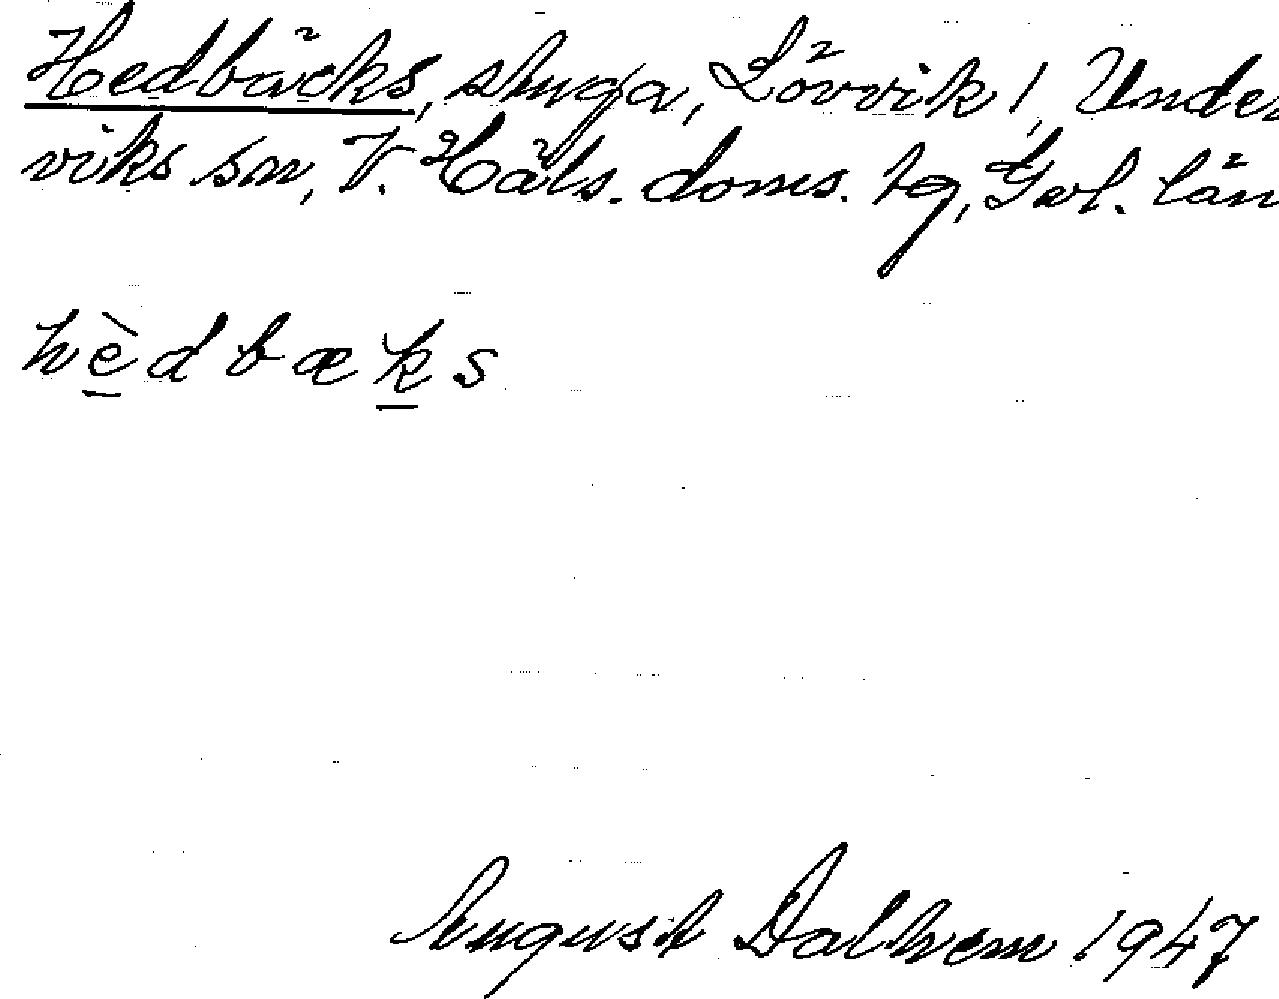 Hedbäcks, stuga, Lövvik 1, Under
viks sn, V. Häls. doms. tg, Gävl. län
hèdbæks
August Dalhem 1947